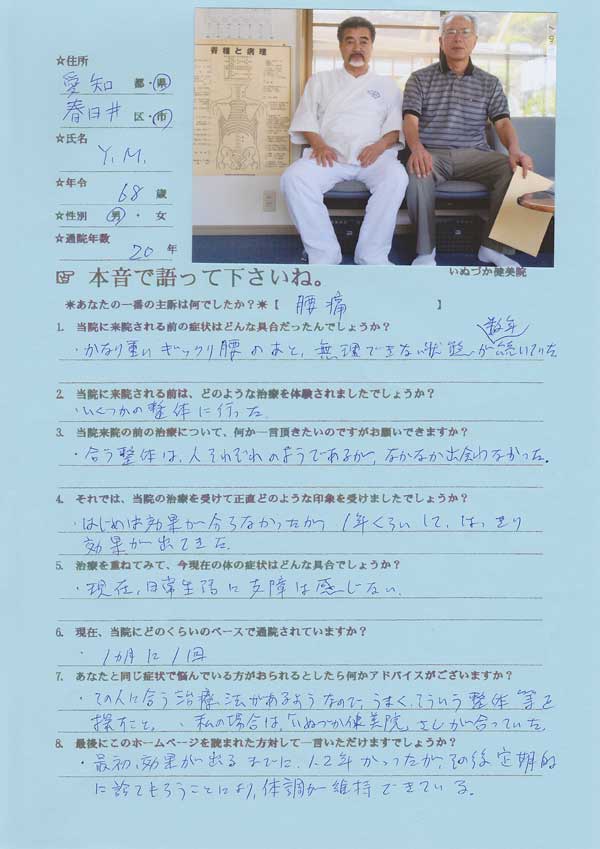 ☆住所
愛知 都・県
春日井 区・市
☆氏名
Y.M.
☆年令
68 歳
☆性別 男・女
☆通院年数
20 年
脊椎と病理
☞ 本音で語って下さいね。
いぬづか健美院
＊あなたの一番の主訴は何でしたか？＊【 腰痛 】
1. 当院に来院される前の症状はどんな具合だったんでしょうか？
・かなり重いギックリ腰のあと、無理できない状態が数年続いていた
2. 当院に来院される前は、どのような治療を体験されましたでしょうか？
・いくつかの整体に行った.
3. 当院来院の前の治療について、何か一言頂きたいのですがお願いできますか？
・合う整体は、人それぞれのようであるが、なかなか出会わなかった.
4. それでは、当院の治療を受けて正直どのような印象を受けましたでしょうか？
・はじめは効果が分らなかったが 1年くらいして、はっきり
効果が出てきた.
5. 治療を重ねてみて、今現在の体の症状はどんな具合でしょうか？
・現在、日常生活に支障は感じない.
6. 現在、当院にどのくらいのペースで通院されていますか？
・1カ月に1回
7. あなたと同じ症状で悩んでいる方がおられるとしたら何かアドバイスがございますか？
・その人に合う治療法があるようなので、うまく、そういう整体等を
探すこと、・私の場合は、「いぬづか健美院」さんが合っていた.
8. 最後にこのホームページを読まれた方対して一言いただけますでしょうか？
・最初、効果が出るまでに、1、2年かかったが、その後定期的
に診てもらうことにより、体調が維持できている.